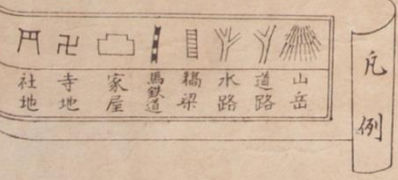 凡例
山岳
道路
水路
橋梁
馬鉄道
家屋
寺地
社地